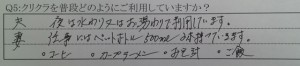 Q5:クリクラを普段どのようにご利用していますか?
夫 夜は水わり又はお湯わりで利用しています。
妻 仕事にはペットボトル500ml 2本持っていきます。
・コーヒー ・カップラーメン ・お茶 ・ご飯